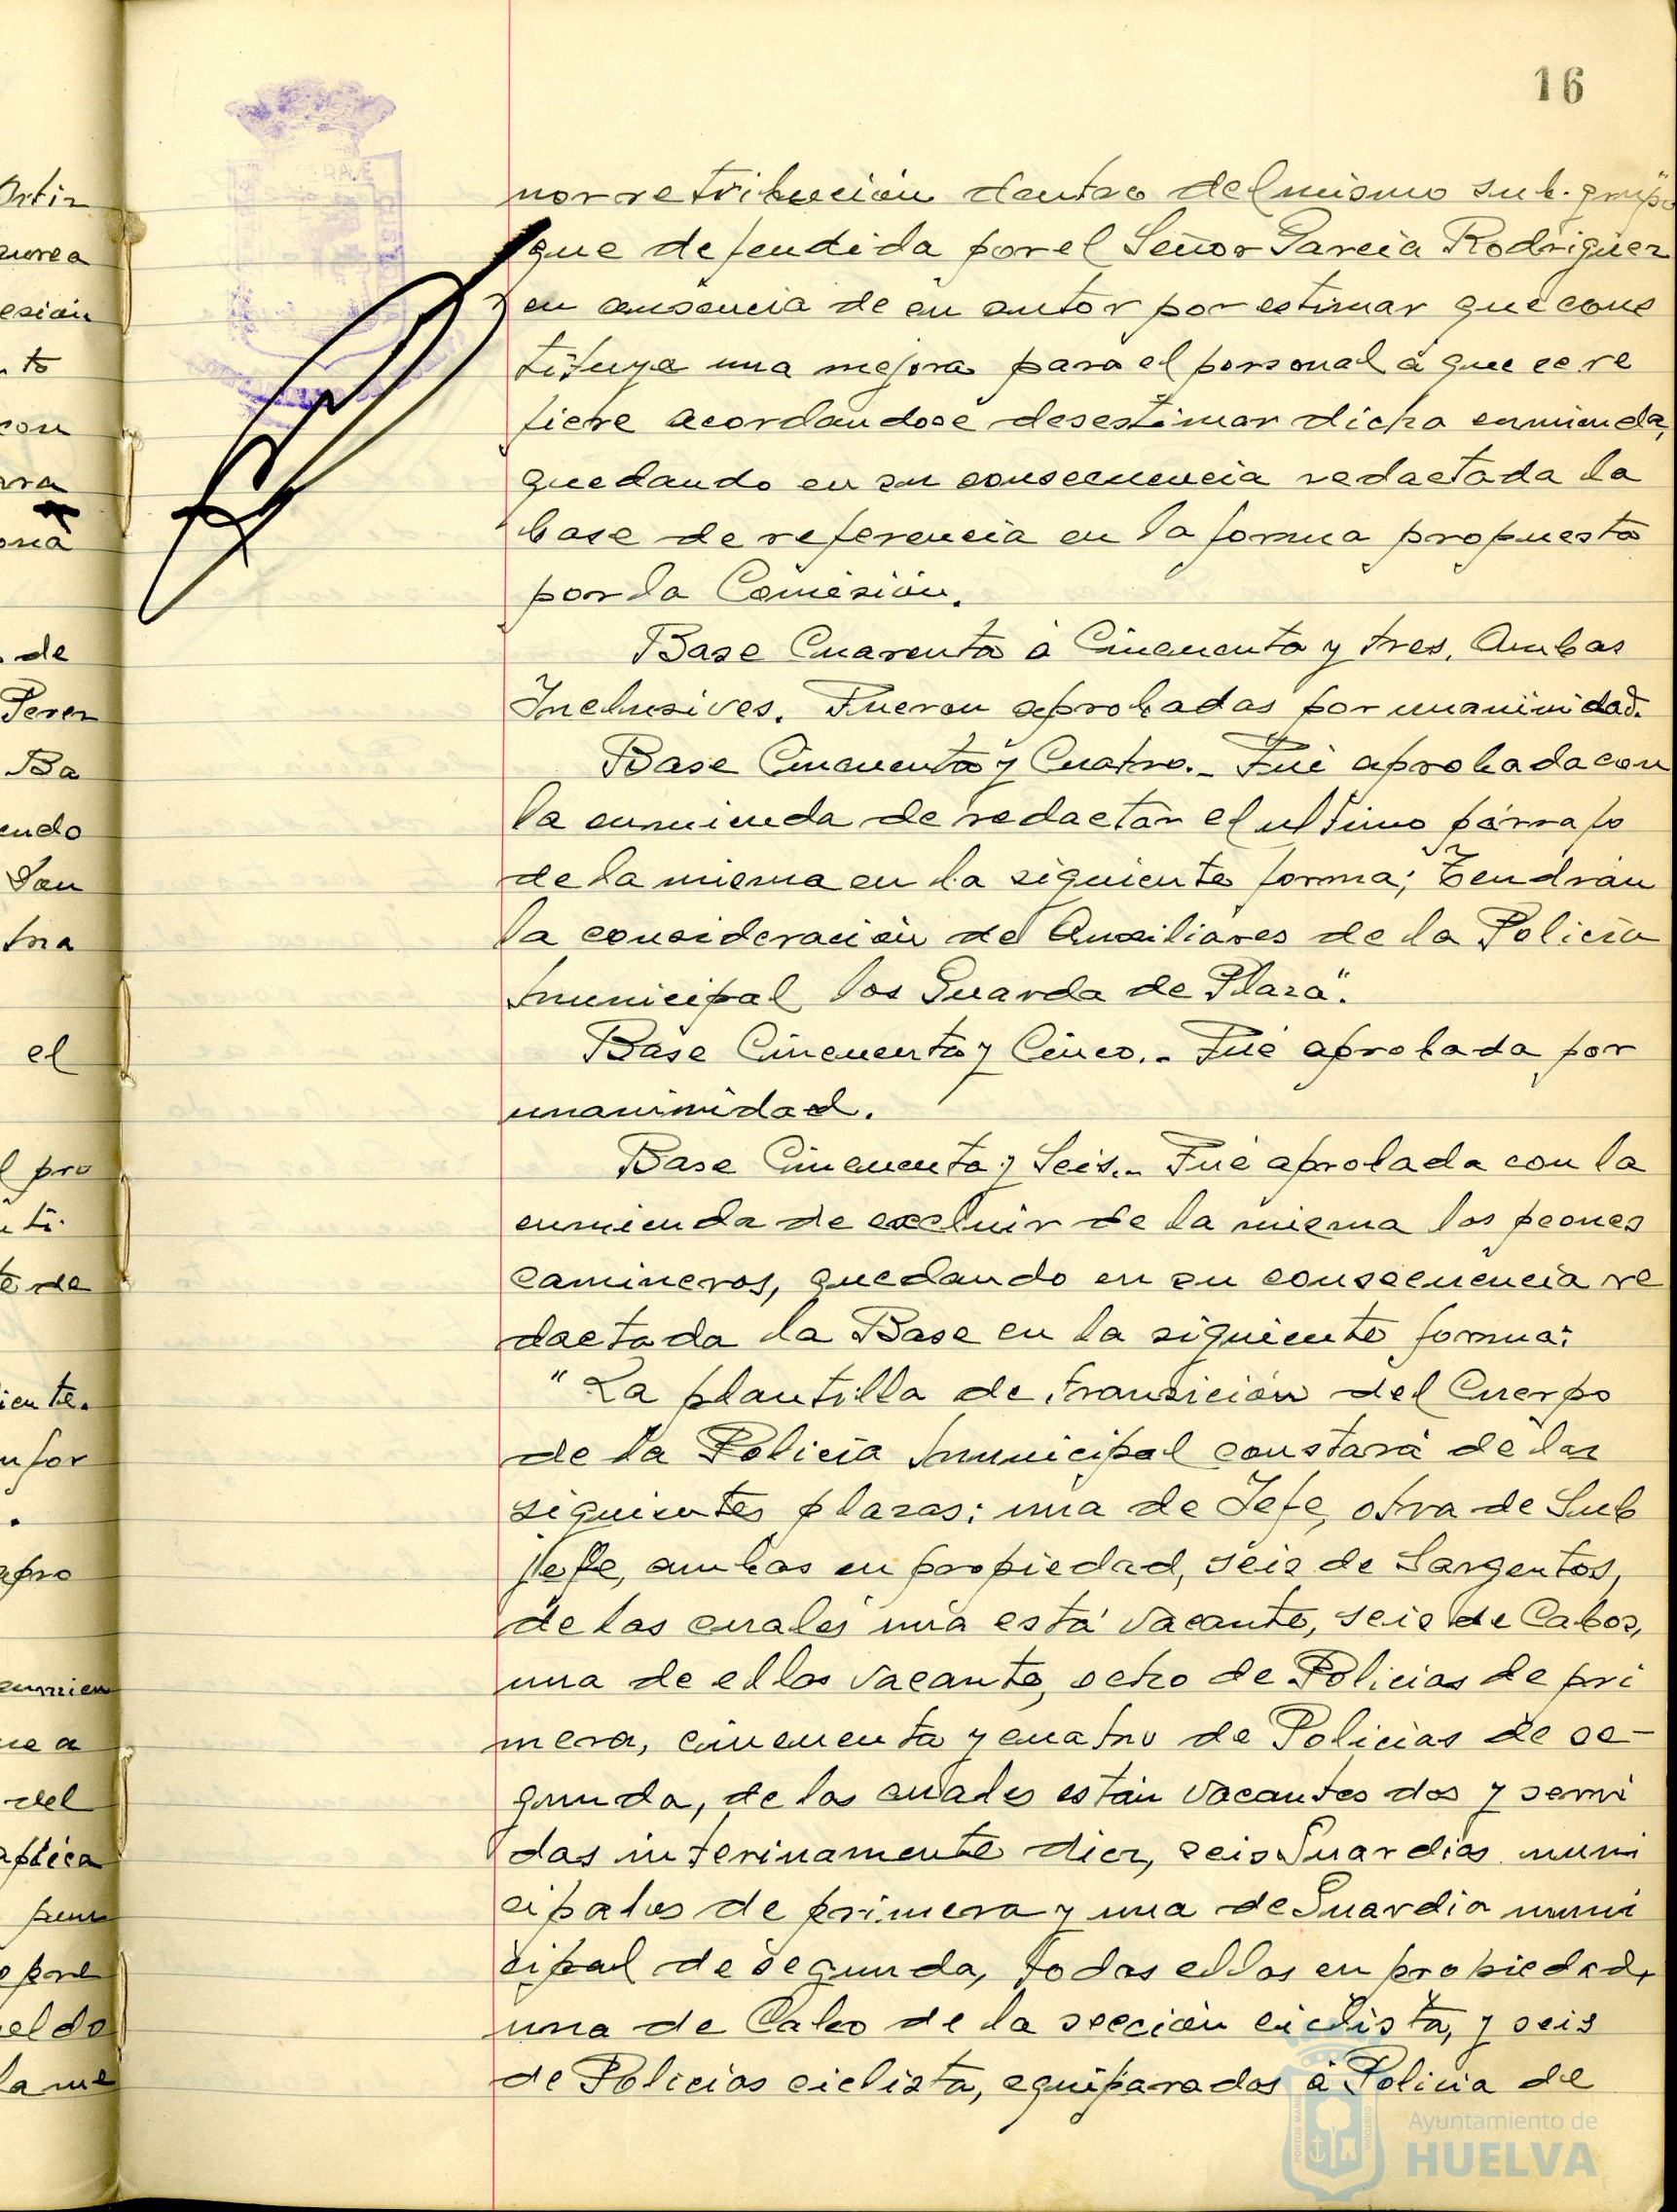 16
nor retribución dentro del mismo sub-grupo
que defendida por el Señor García Rodríguez
en ausencia de su autor por estimar que cons
tituye una mejora para el personal á que se re
fiere acordandose desestimar dicha enmienda,
quedando en su consecuencia redactada la
base de referencia en la forma propuesta
por la Comisión.
Base Cuarenta á Cincuenta y tres. Ambas
Inclusives. Fueron aprobadas por unanimidad.
Base Cincuenta y Cuatro.- Fué aprobada con
la enmienda de redactar el ultimo párrafo
de la misma en la siguiente forma; "Tendrán
la consideración de Auxiliares de la Policía
municipal los Guarda de Plaza".
Base Cincuenta y Cinco.- Fué aprobada por
unanimidad.
Base Cincuenta y Seis.- Fué aprobada con la
enmienda de excluir de la misma los peones
camineros, quedando en su consecuencia re
dactada la Base en la siguiente forma:
"La plantilla de transición del Cuerpo
de la Policía municipal constará de las
siguientes plazas: una de Jefe, otra de Sub
Jefe, ambas en propiedad, seis de Sargentos,
de las cuales una está vacante, seis de Cabos,
una de ellas vacante, ocho de Policias de pri
mera, cincuenta y cuatro de Policías de se-
gunda, de las cuales están vacantes dos y servi
das interinamente diez, seis Guardias muni
cipales de primera y una de Guardia muni
cipal de segunda, todas ellas en propiedad,
una de Cabo de la sección ciclista, y seis
de Policias ciclista, equiparados á Policia de
Ayuntamiento de
HUELVA
Ortiz
esión
to
con
de
Perez
Ba
endo
San
tra
el
l pro
te de
iente.
nfor
apro
enmien
del
aplica
eldo
la me